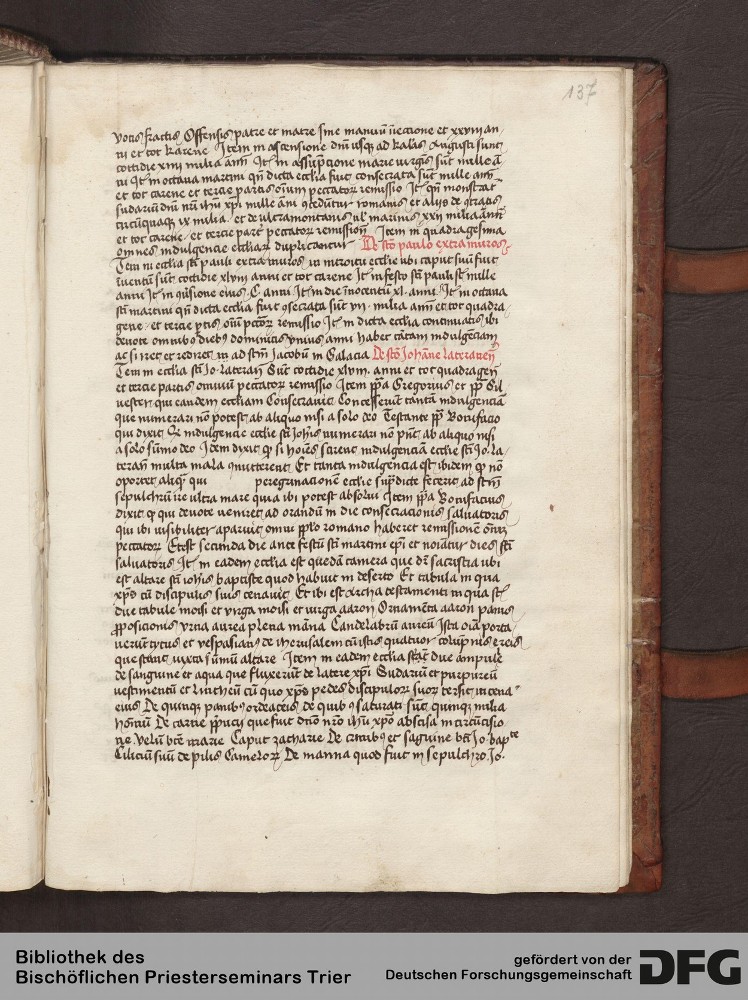 137
votis fractis Offensis patre et matre sine manuū iniectione et xxviij an
ni et tot karene Item in ascensione dn̄i usq; ad kalēs Augusti sunt
cottidie xiiij milia ann̄ Jt̄ in assūpcione marie virgīs sūt mille ā
ni Jt̄ in octaua martini qn̄ dicta ecclīa fuit consecrata sūt mille ann̄
et tot carene et tercie partis oīum peccatoꝝ remissio Jt̄ qn̄ monstrat̄
sudariū dn̄i nr̄i ihū xp̄i mille āni ꝯcedūtur romanis et alijs de
circūquaqꝫ ix milia et de ultramontanis ul̄ marinis xxij milia ann̄
et tot carene et tercie part̄ peccatoꝝ remission̄ Item in quadragesima
omnes indulgencie eccliaꝝ duplicantur De sc̄o paulo extra muros
Item in ecclīa sc̄i pauli extra muros in introitu ecclīe ubi caput suū fuit
inuentū sūt cottidie xlviij anni et tot carene Jt̄ in festo sc̄i pauli sūt mille
anni Jt̄ in ꝯūsione eius C anni Jt̄ in die īnocentū xl anni Jt̄ in octaua
sc̄i martini qn̄ dicta ecclīa fuit ꝯsecrata sūt vij milia ann̄ et tot quadra
gene et tercie ꝑtis oīū pct̄oꝝ remissio Jt̄ in dicta ecclīa continuatis ibi
deuote omnibꝯ diebꝫ dominicis vnius anni habet tātam indulgēciam
ac si iret et rediret ad sc̄m Jacobū in Galacia De sc̄o Johāne lateranen̄
Item in ecclīa sc̄i Jo. lateran̄ Sūt cottidie xlviij anni et tot quadragen̄
et tercie partis omniū peccatoꝝ remissio Item pp̄a Gregorius et pp̄ Sil
uester qui eandem eccliam Consecrauit Concesserūt tantā indulgenciā
que numerari nō potest ab aliquo nisi a solo deo Testante pp̄ Bonifacio
qui dixit Qꝫ indulgencie ecclīe sc̄i Joh̄is numerari nō pn̄t ab aliquo nisi
a solo sūmo deo Idem dixit ꝙ si hoīes scirent indulgenciā ecclīe sc̄i Jo. la
teran̄ multa mala ꝯmitterent Et tanta indulgencia est ibidem ꝙ nō
oportet aliqꝫ qui peregrinacionem ecclīe sup̄dicte fecerit ad sc̄m
sepulchrū ire ultra mare quia ibi potest absolui Item pp̄a Bonifacius
dixit ꝙ qui deuote venirēt ad orandū in die consecracionis saluatoris
qui ibi visibiliter aparuit omni pp̄lo romano haberet remissionē oīm
peccatoꝝ Et est secunda die ante festū sc̄i martini ep̄i et noīatur dies sc̄i
saluatoris Jt̄ in eadem ecclīa est quedā camera que dr̄ sacristia ubi
est altare sc̄i ioh̄is baptiste quod habuit in deserto Et tabula in qua
xp̄s cū discipulis suis cenauit Et ibi est Archa testamenti in qua st̄
due tabule moisi et virga moisi et uirga aaron Ornamēta aaron panis
ꝓposicionis vrna aurea plena māna Candelabrū aureū Ista oīa porta
uerūt tytus et vespasianꝯ de iherusalem cū istis quatuor colūpnis ereis
que stant iuxta sūmū altare Item in eadem ecclīa stāt due ampule
de sanguine et aqua que fluxerūt de latere xp̄i Sudariū et purpureū
vestimentū et lintheū cū quo xp̄s pedes discipuloꝝ suoꝝ tersit in cena
eius De quinqꝫ panibꝯ ordeaceis de quibꝯ saturati sūt quinqꝫ milia
hominū De carne p̄pucij que fuit dn̄o nr̄o ihū xp̄o abscisa in circūcisio
ne Velū btē marie Caput zacharie De cineribꝯ et sāguine bt̄i Jo. bapte
Ciliciū suū de pilis Cameloꝝ De manna quod fuit in sepulchro Jo.
Bibliothek des
Bischöflichen Priesterseminars Trier
gefördert von der
Deutschen Forschungsgemeinschaft
DFG